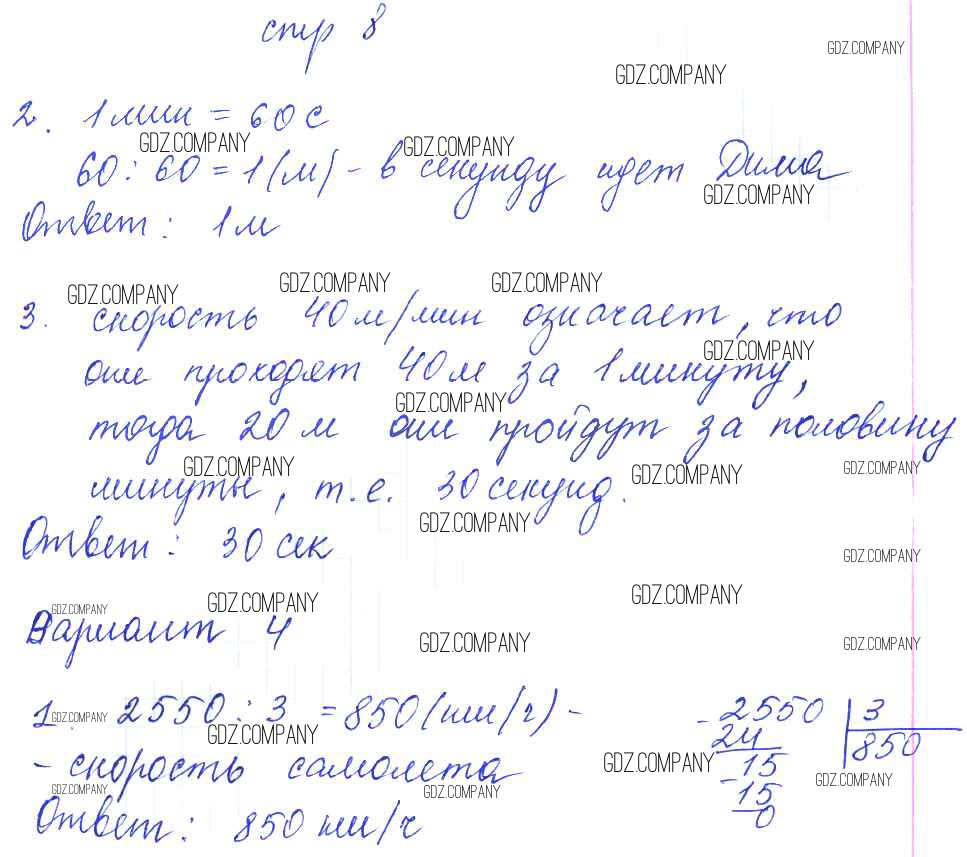 стр 8
GDZ.COMPANY
GDZ.COMPANY
2. 1 мин = 60 с
GDZ.COMPANY GDZ.COMPANY
60 : 60 = 1 (м) - в секунду идет Дима
GDZ.COMPANY
Ответ : 1 м
GDZ.COMPANY GDZ.COMPANY GDZ.COMPANY
3. скорость 40 м/мин означает, что
GDZ.COMPANY
они проходят 40 м за 1 минуту,
GDZ.COMPANY
тогда 20 м они пройдут за половину
GDZ.COMPANY GDZ.COMPANY GDZ.COMPANY
минуты, т.е. 30 секунд.
GDZ.COMPANY
Ответ : 30 сек
GDZ.COMPANY
GDZ.COMPANY GDZ.COMPANY GDZ.COMPANY
Вариант 4
GDZ.COMPANY GDZ.COMPANY
1. 2550 : 3 = 850 (км/ч) -
GDZ.COMPANY GDZ.COMPANY
- скорость самолета
GDZ.COMPANY GDZ.COMPANY
Ответ : 850 км/ч
- 2550 3
24 850
GDZ.COMPANY
- 15
GDZ.COMPANY
15
0